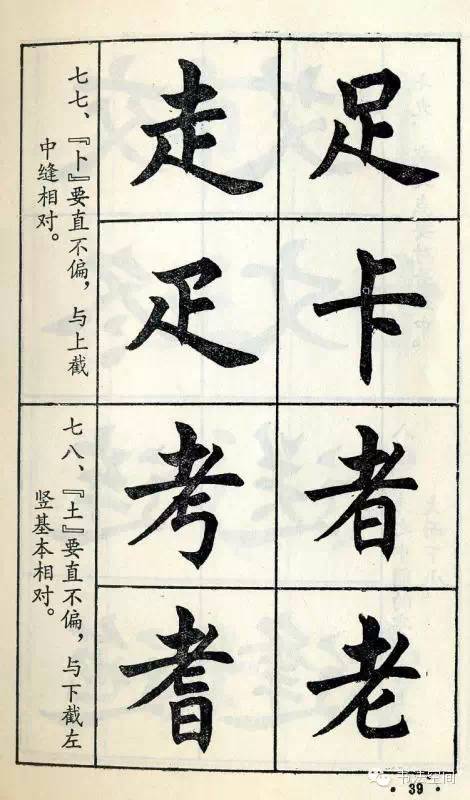 足
卡
走
疋
七七、『卜』要直不偏，与上截
中缝相对。
者
老
考
耆
七八、『土』要直不偏，与下截左
竖基本相对。
书法空间
· 39 ·